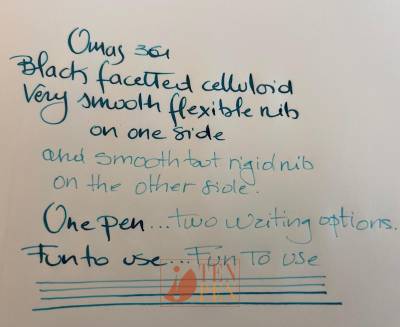 Omas 361
Black facetted celluloid
Very smooth flexible nib
on one side
and smooth but rigid nib
on the other side.
One pen...two writing options.
Fun to use...Fun To use
TEN
PEN